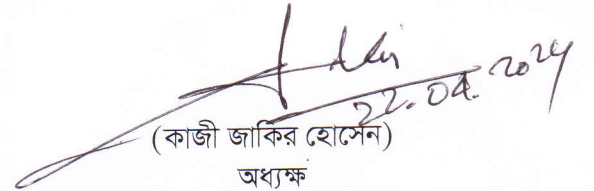 22.04.2024
(কাজী জাকির হোসেন)
অধ্যক্ষ